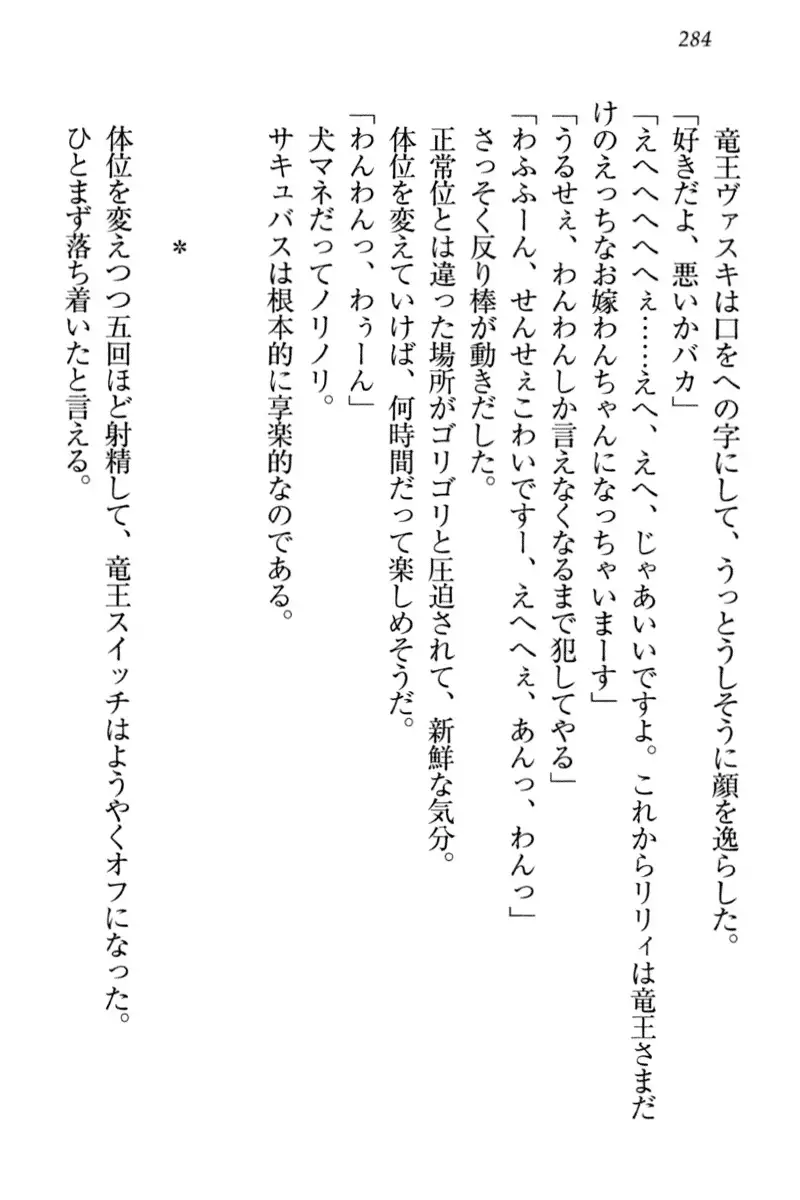 284
竜王ヴァスキは口をへの字にして、うっとうしそうに顔を逸らした。
「好きだよ、悪いかバカ」
「えへへへへへぇ……えへ、えへ、じゃあいいですよ。これからリリィは竜王さまだ
けのえっちなお嫁わんちゃんになっちゃいまーす」
「うるせぇ、わんわんしか言えなくなるまで犯してやる」
「わふふーん、せんせぇこわいですー、えへへぇ、あんっ、わんっ」
さっそく反り棒が動きだした。
正常位とは違った場所がゴリゴリと圧迫されて、新鮮な気分。
体位を変えていけば、何時間だって楽しめそうだ。
「わんわんっ、わぅーん」
犬マネだってノリノリ。
サキュバスは根本的に享楽的なのである。
*
体位を変えつつ五回ほど射精して、竜王スイッチはようやくオフになった。
ひとまず落ち着いたと言える。